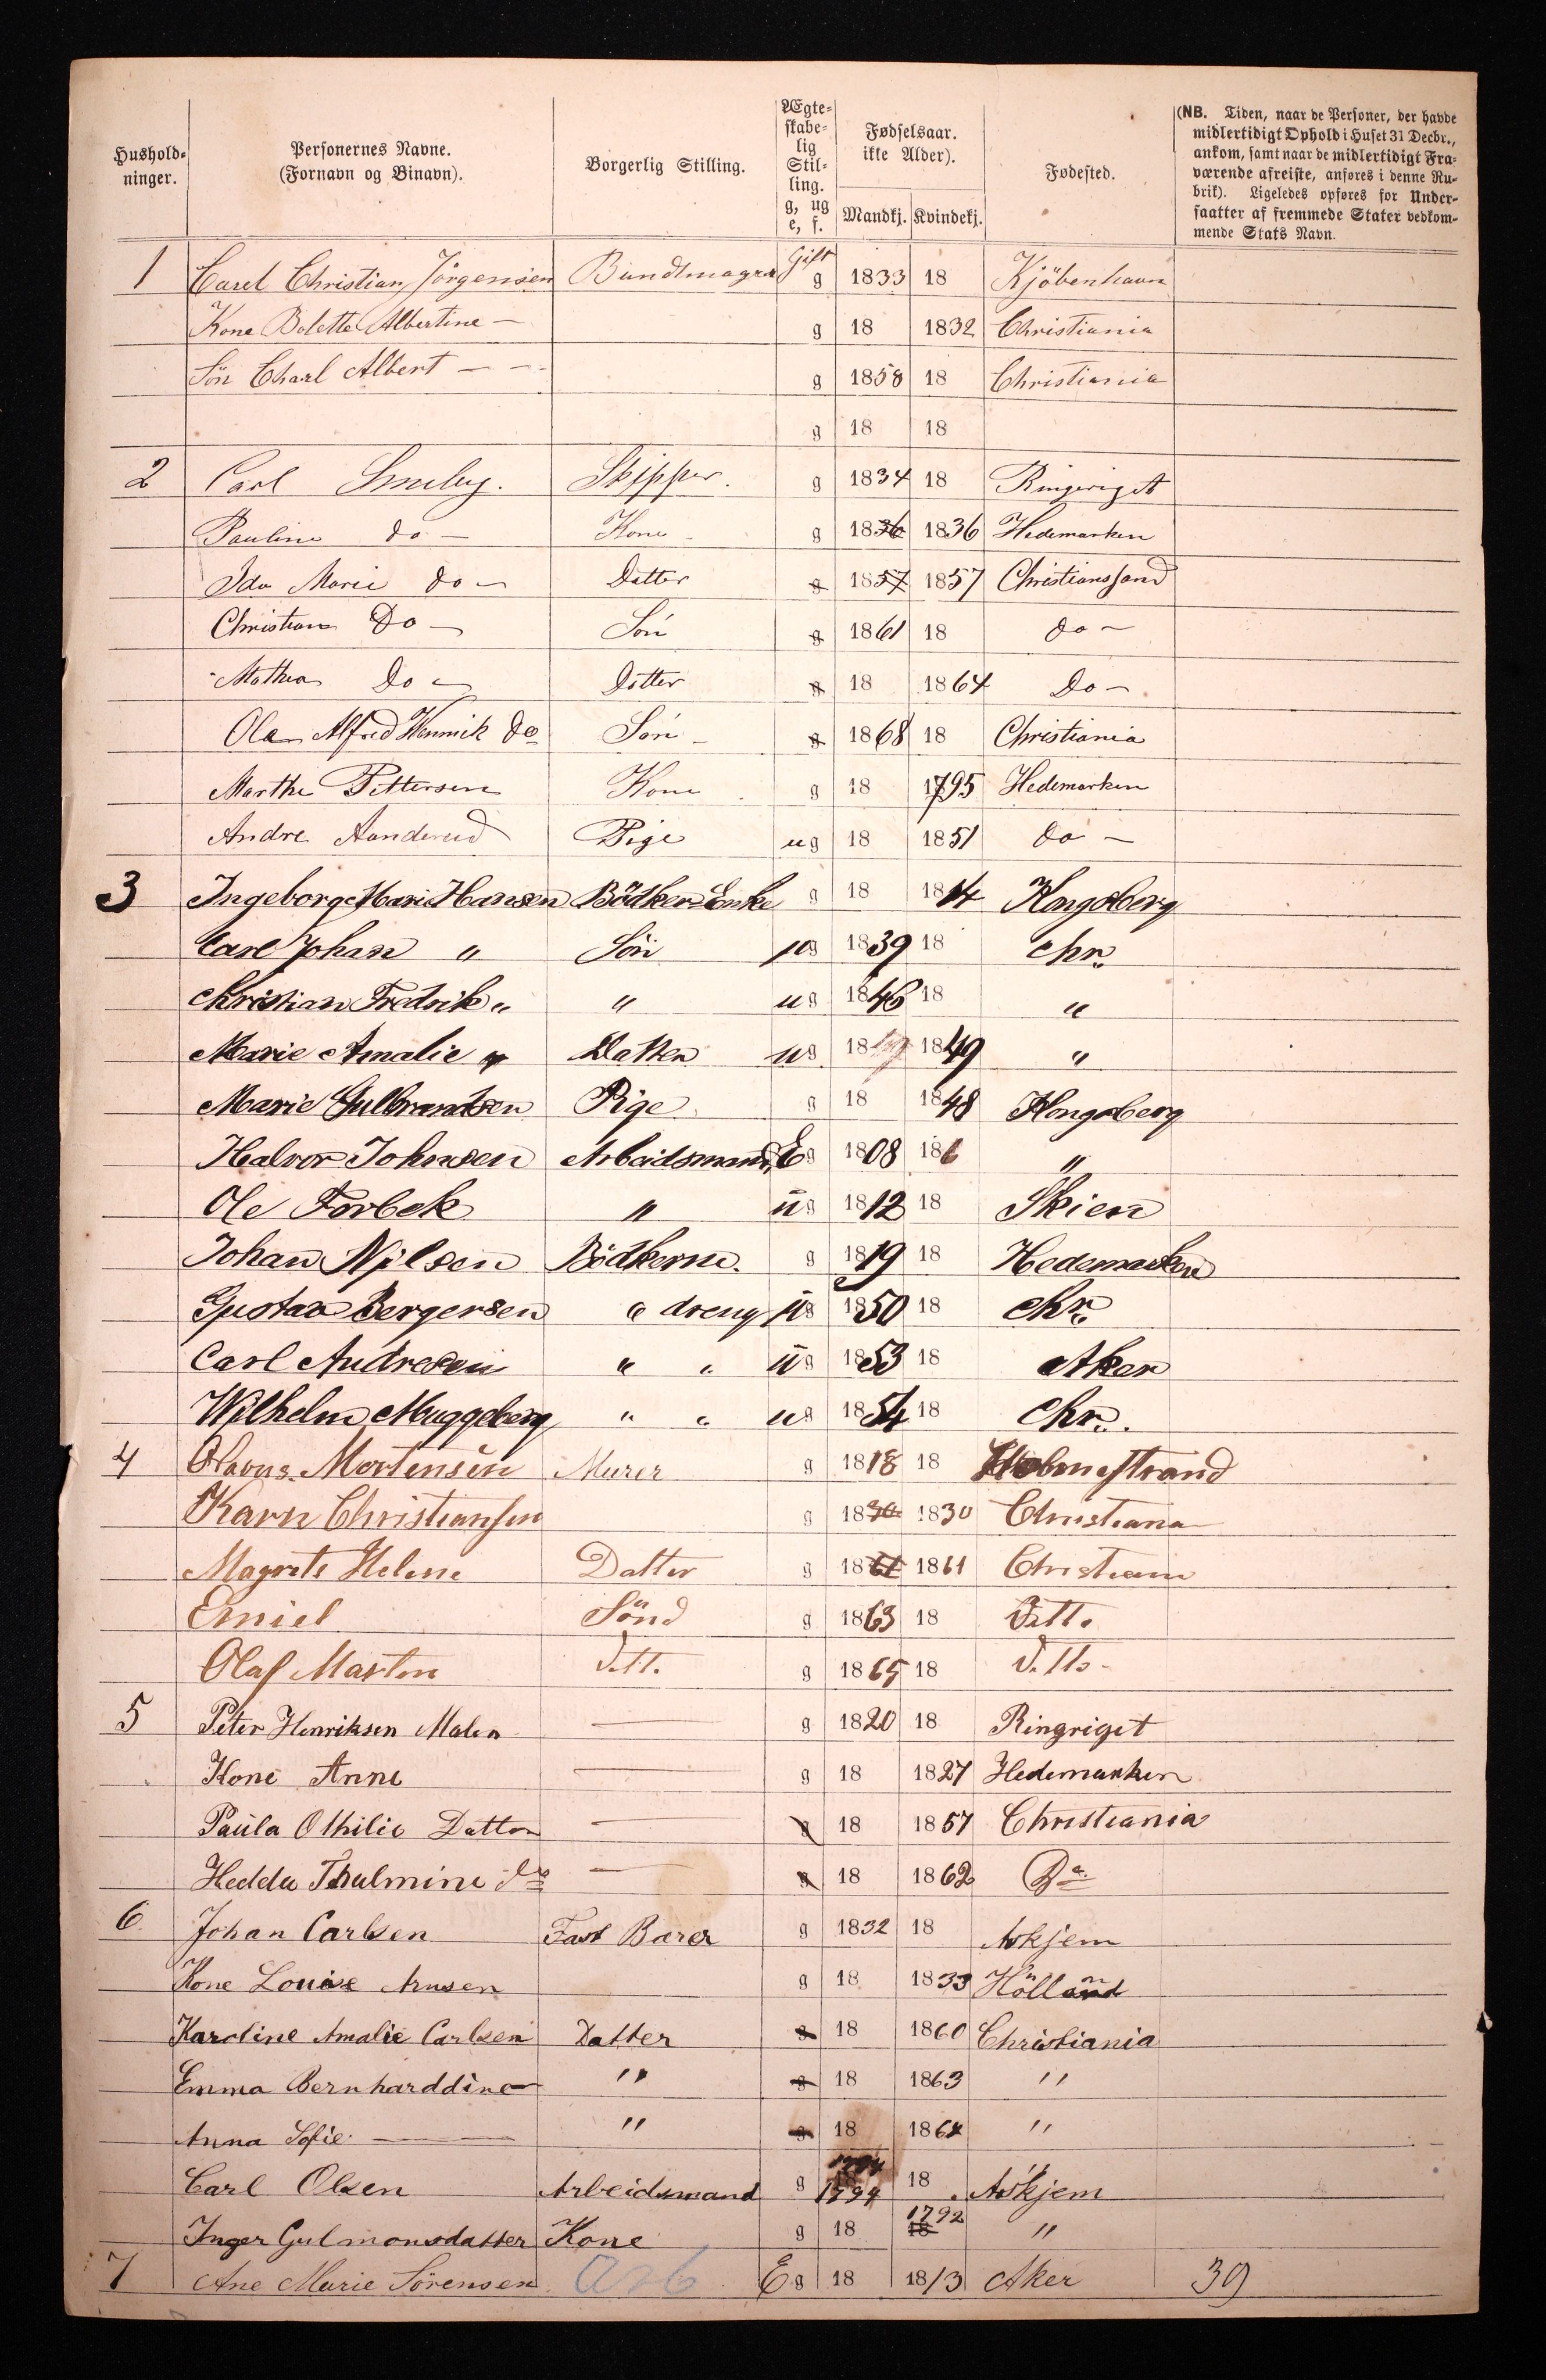 Hushold-
ninger.
Personernes Navne.
(Fornavn og Binavn).
Borgerlig Stilling.
Ægte-
skabe-
lig
Stil-
ling.
g, ug
e, f.
Fødselsaar.
ikke Alder).
Mandkj. Kvindekj.
Fødested.
(NB. Tiden, naar de Personer, der havde
midlertidigt Ophold i Huset 31 Decbr.,
ankom, samt naar de midlertidigt Fra-
værende afreiste, anføres i denne Ru-
brik). Ligeledes opføres for Under-
saatter af fremmede Stater vedkom-
mende Stats Navn.
1 Carel Christian Jörgensen Bundtmager Gift g 1833 18 Kjöbenhavn
Kone Bolette Albertine — g 18 1832 Christiania
Sön Charl Albert — — g 1858 18 Christiania
g 18 18
2 Carl Smeby. Skipper. g 1834 18 Ringeriget
Pauline do — Kone g 1836 1836 Hedemarken
Ida Marie do — Datter g 1857 1857 Christianssand
Christian Do — Sön g 1861 18 do —
Mathea Do — Datter g 18 1864 Do —
Ole Alfred Henrik do Sön g 1868 18 Christiania
Marthe Pettersen Kone g 18 1795 Hedemarken
Andre Aanderud Pige ug 18 1851 do —
3 Ingeborg Marie Hansen Bödker Enke g 18 1814 Kongsberg
Carl Johan " Sön ug 1839 18 Chr.
Christian Fredrik " " ug 1846 18 "
Marie Amalie " Datter ug 1849 1849 "
Marie Gulbrandsen Pige g 18 1848 Kongsberg
Halvor Johnsen Arbeidsmand, E g 1808 18 "
Ole Forbek " ug 1812 18 Skien
Johan Nilsen Bödkerm. g 1819 18 Hedemarken
Gustav Bergersen " dreng ug 1850 18 Chr.
Carl Andresen " " ug 1853 18 Aker
Wilhelm Muggeberg " " ug 1854 18 Chr.
4 Olavus Mortensen Murer g 1818 18 Holmestrand
Karn Christiansen g 1830 1830 Christiana
Magrete Helene Datter g 1861 1861 Christiania
Emiel Sönd g 1863 18 Ditto
Olaf Marten Ditto g 1865 18 Ditto
5 Peter Henriksen Malen — g 1820 18 Ringriget
Kone Anne — g 18 1827 Hedemarken
Paula Othilie Datter — g 18 1857 Christiania
Hedda Thulmine do — g 18 1862 Do
6 Johan Carlsen Fast Barer g 1832 18 Askjem
Kone Louise Arnsen g 18 1833 Hölland
Karoline Amalie Carlsen Datter g 18 1860 Christiania
Emma Bernharddine " g 18 1863 "
Anna Sofie — " g 18 1864 "
Carl Olsen Arbeidsmand g 1794 18 Askjem
Inger Gulmonsdatter Kone g 18 1792 "
7 Ane Marie Sörensen Arb E g 18 1813 Aker 39